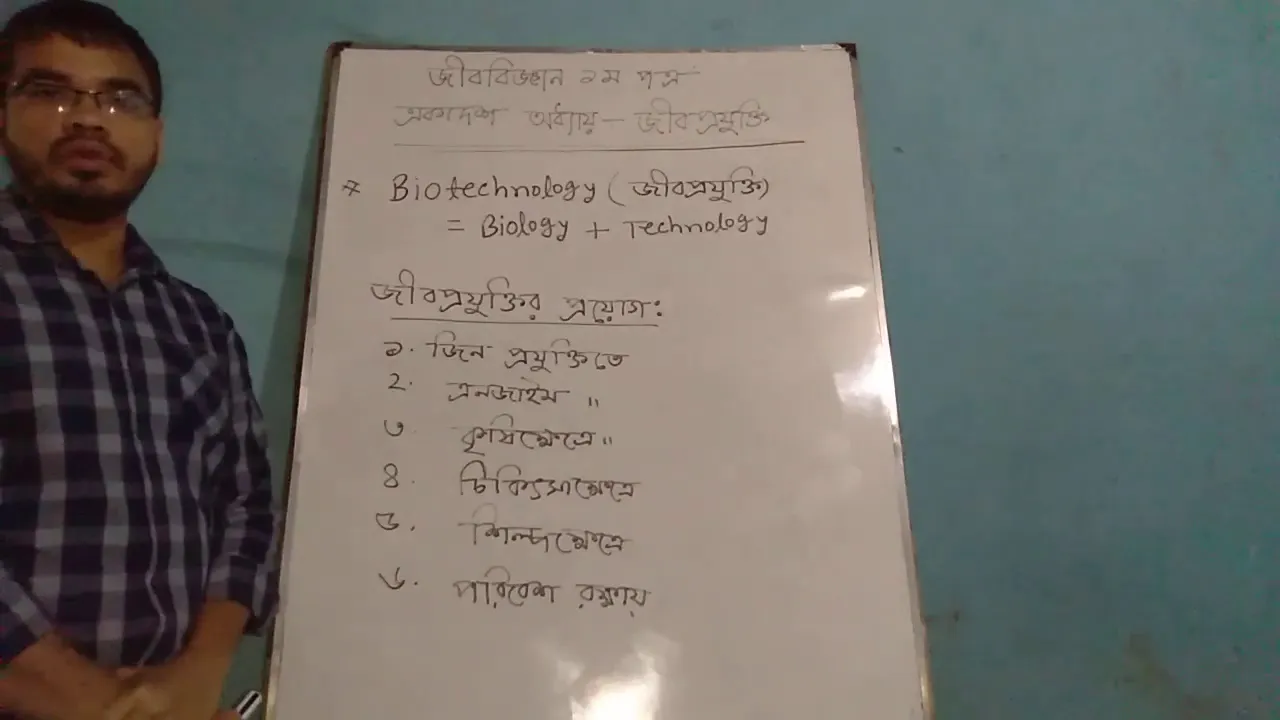 জীববিজ্ঞান ১ম পত্র
একাদশ অধ্যায় – জীবপ্রযুক্তি
* Biotechnology (জীবপ্রযুক্তি)
= Biology + Technology
জীবপ্রযুক্তির প্রয়োগ:
১. জিন প্রযুক্তিতে
২. এনজাইম "
৩ কৃষিক্ষেত্রে "
৪. চিকিৎসাক্ষেত্রে
৫. শিল্পক্ষেত্রে
৬. পরিবেশ রক্ষায়